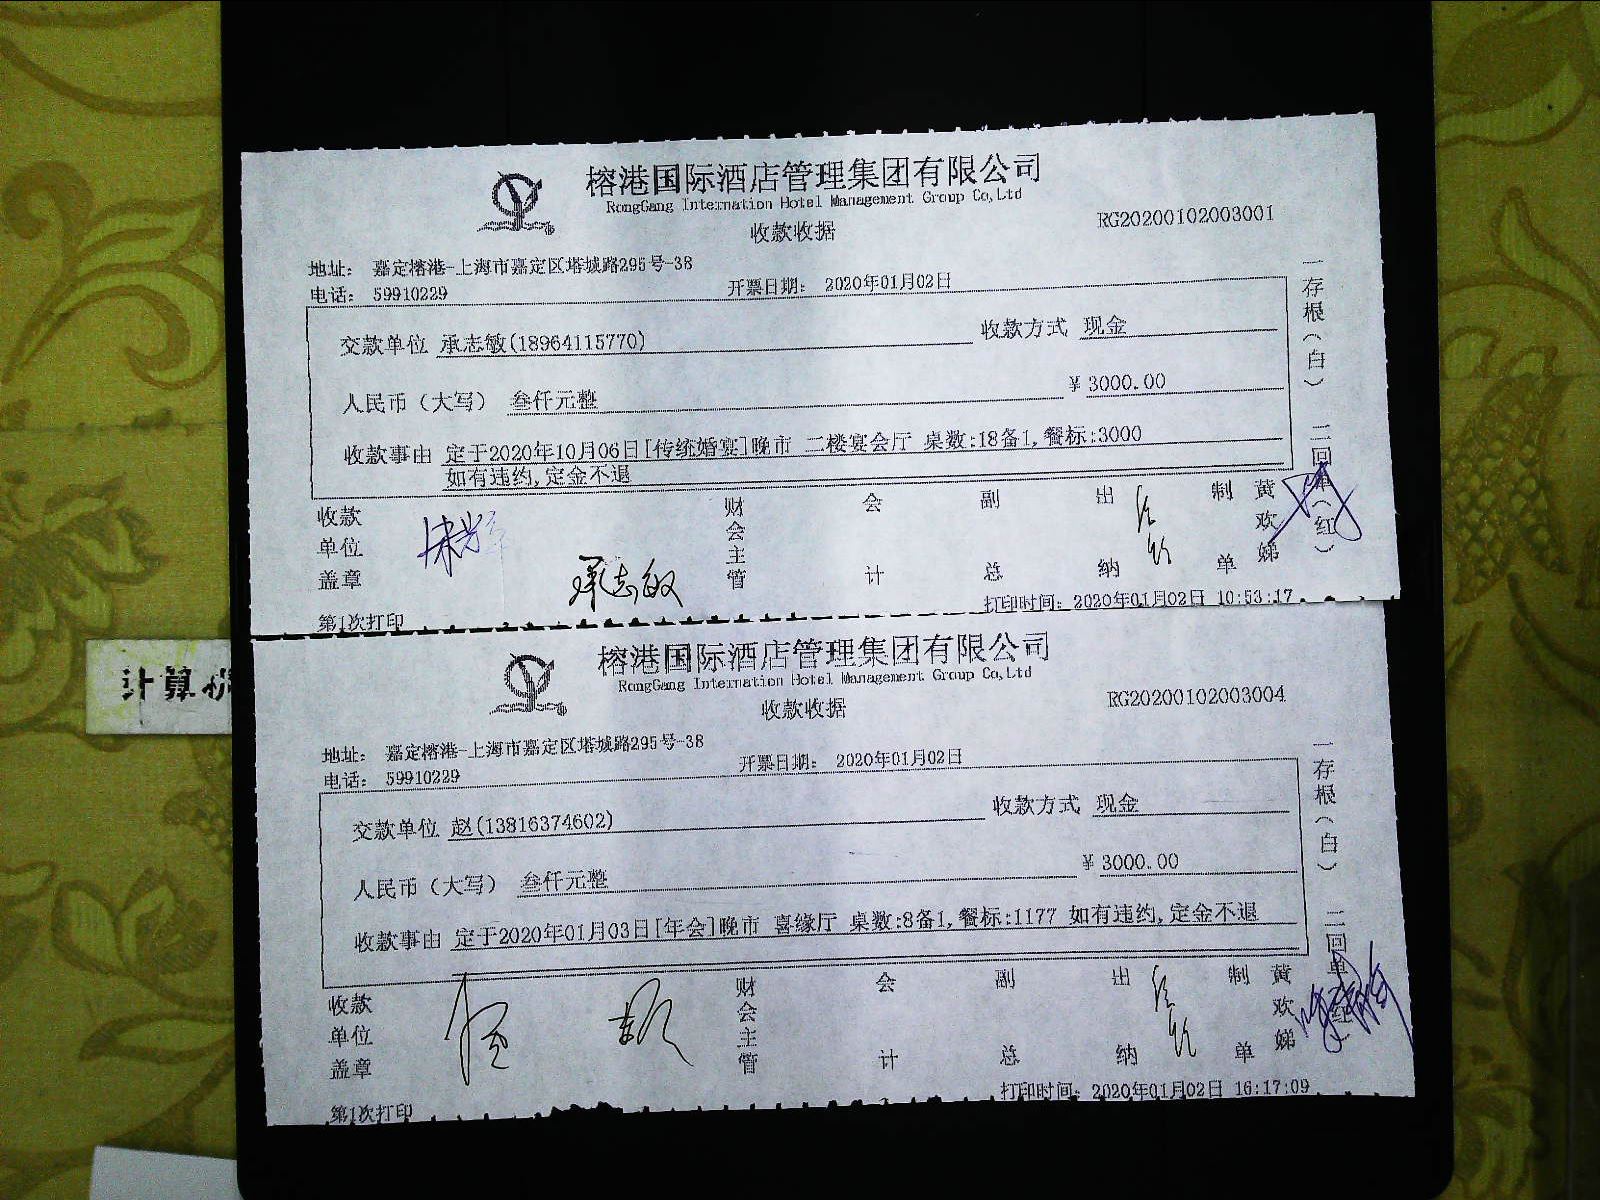 榕港国际酒店管理集团有限公司
RongGang Internation Hotel Management Group Co,Ltd
收款收据
RG20200102003001
地址： 嘉定榕港-上海市嘉定区塔城路295号-38
电话： 59910229
开票日期： 2020年01月02日
交款单位 承志敏(18964115770)
收款方式 现金
人民币（大写） 叁仟元整
¥ 3000.00
收款事由 定于2020年10月06日[传统婚宴]晚市 二楼宴会厅 桌数:18备1,餐标:3000
如有违约,定金不退
一存根（白）
二回单（红）
收款单位盖章
承志敏
财会主管
会计
副总
出纳
制单
黄欢娣
第1次打印
打印时间：2020年01月02日 10:53:17
计算机
榕港国际酒店管理集团有限公司
RongGang Internation Hotel Management Group Co,Ltd
收款收据
RG20200102003004
地址： 嘉定榕港-上海市嘉定区塔城路295号-38
电话： 59910229
开票日期： 2020年01月02日
交款单位 赵(13816374602)
收款方式 现金
人民币（大写） 叁仟元整
¥ 3000.00
收款事由 定于2020年01月03日[年会]晚市 喜缘厅 桌数:8备1,餐标:1177 如有违约,定金不退
一存根（白）
二回单（红）
收款单位盖章
财会主管
会计
副总
出纳
制单
黄欢娣
第1次打印
打印时间：2020年01月02日 16:17:09